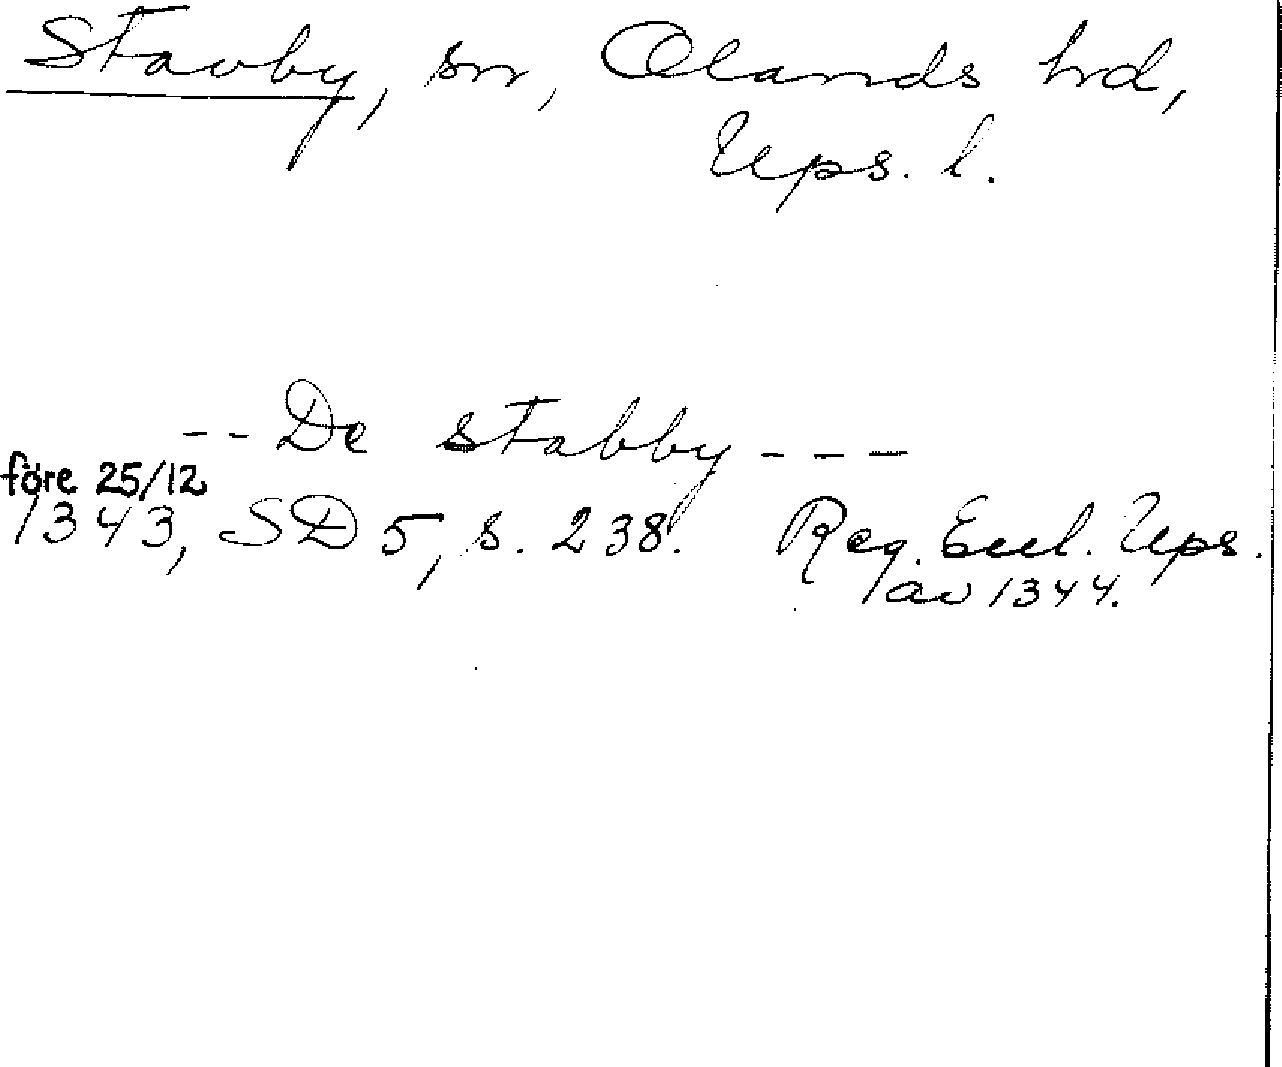 Stavby, sn, Olands hd,
Ups. l.
-- De stabby ---
före 25/12
1343, SD 5, s. 238. Reg. Eccl. Ups.
av 1344.